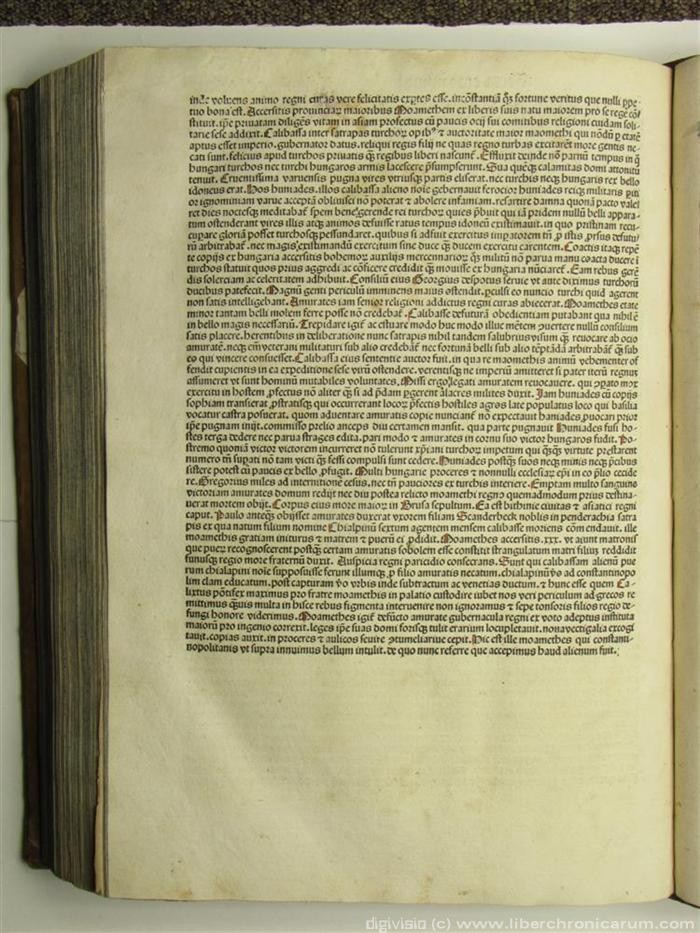 inde volvens animo regni curas vere felicitatis exptes esse. incõstantiã q̃ȝ fortune veritus que nulli ppe
tuo bona est. Accersitis provinciaꝝ maioribus Moamethem ex liberis suis natu maiorem pro se rege cõ
stituit. ip̃e privatam diligẽs vitam in asiam profectus cũ paucis ocij sui comitibus religioni cuidam soli
tarie sese addixit. Calibassa inter satrapas turchoꝝ opibꝰ ⁊ auctoritate maior maomethi qui nõdũ ꝑ etatẽ
aptus esset imperio. gubernator datus. reliqui regis filij ne quas regno turbas excitarẽt more gentis ne-
cati sunt. felicius apud turchos privatis q̃ȝ regibus liberi nascunt᷑. Effluxit deinde nõ parũ tempus in q̃
hungari turchos nec turchi hungaros armis lacescere p̃sumpserunt. Sua quẽq̃ȝ calamitas domi attonitũ
tenuit. Cruentissima varnensis pugna vires vtriusq̃ȝ partis eliserat. nec turchis necq̃ȝ hungaris rex bello
idoneus erat. Nos huniades. illos calibassa alieno noĩe gubernauit ferocior huniades reicq̃ȝ militaris
or ignominiam varne acceptã oblivisci nõ poterat ⁊ abolere infamiam. resartire damna quonã pacto vale
ret dies noctesq̃ȝ meditabat᷑ spem bene gerende rei turchoꝝ quies p̃buit qui iã pridem nullũ belli appara-
tum ostenderant vires illis atq̃ȝ animos defuisse ratus tempus idoneũ existimauit. in quo pristinam recu-
cupare gloriã posset turchosq̃ȝ pessundaret. quibus si adfuit exercitus impatorem tñ ꝓ istis ꝓrsus defutu
rũ arbitrabat᷑. nec magis existimandũ exercitum sine duce q̃ȝ ducem exercitu carentem. Coactis itaq̃ȝ repẽ
te copijs ex hungaria accersitis bohemoꝝ auxilijs mercennarioꝝ q̃ȝ militũ nõ parua manu coacta ducere ĩ
turchos statuit quos prius aggredi ac cõficere credidit q̃ȝ mouisse ex hungaria nũciaret᷑. Eam rebus gerẽ
dis solerciam ac celeritatem adhibuit. Consiliũ eius Georgius despotus seruie vt ante diximus turchorũ
ducibus patefecit. Magnũ genti periculũ imminens maius ostendit. ꝑculsi eo nuncio turchi quid agerent
non satis intelligebant. Amurates iam senior religioni addictus regni curas abiecerat. Moamethes etate
minor tantam belli molem ferre posse nõ credebat᷑. Calibasse defuturã obedientiam putabant qua nihil ẽ
in bello magis necessariũ. Trepidare igit᷑ ac estuare modo huc modo illuc mẽtem ꝯuertere nullũ consilium
satis placere. herentibus in deliberatione nunc satrapis nihil tandem salubrius visum q̃ȝ reuocare ab ocio
amuratẽ. necq̃ȝ em̃ veterani militaturi sub alio credebãt᷑ nec fortunã belli sub alio tẽptãdã arbitrabãt᷑ q̃ȝ sub
eo qui vincere consuesset. Calibassa eius sententie auctor fuit. in qua re moamethis animũ vehementer of
fendit cupientis in ea expeditione sese virũ ostendere. verentisq̃ȝ ne imperiũ amitteret si pater iterũ regnũ
assumeret vt sunt hominũ mutabiles voluntates. Missi ergo legati amuratem reuocauere. qui ꝯpato mox
exercitu in hostem ꝓfectus nõ aliter q̃ȝ si ad p̃dam ꝑgerent alacres milites duxit. Iam huniades cũ copijs
sophiam transierat ꝓstratisq̃ȝ qui occurrerant locoꝝ p̃fectis hostiles agros late populatus loco qui basilia
vocatur castra posuerat. quom aduentare amuratis copie nunciant᷑ nõ expectauit haniades ꝓuocari prior
ip̃e pugnam inijt. commisso prelio anceps diu certamen mansit. qua parte pugnauit Huniades fusi ho-
stes terga dedere nec parua strages edita. pari modo ⁊ amurates in cornu suo victor hungaros fudit. Po-
stremo quoniã victor victorem incurreret nõ tulerunt xp̃iani turchoꝝ impetum qui q̃ȝq̃ȝ virtute prestarent
numero tñ supati nõ tam victi q̃ȝ fessi compulsi sunt cedere. Huniades postq̃ȝ suos necq̃ȝ minis necq̃ȝ p̃cibus
sistere potest cũ paucis ex bello ꝓfugit. Multi hungarie proceres ⁊ nonnulli ecclesiaꝝ ep̃i in eo p̃lio cecide
re. Gregorius miles ad internitione cesus. nec tñ pauciores ex turchis interiere. Emptam multo sanguine
victoriam amurates domum redijt nec diu postea relicto moamethi regno quemadmodum prius destina-
uerat mortem obijt. Corpus eius more maioꝝ in Brusa sepultum. Ea est bithinie ciuitas ⁊ asiatici regni
caput. Paulo anteq̃ȝ obijsset amurates duxerat vxorem filiam Scanderbeck noblis in penderachia satra
pis ex qua natum filium nomine Chialpinũ sextum agentem mensem calibasse moriens cõmendauit. ille
moamethis gratiam initurus ⁊ matrem ⁊ puerũ ei ꝓdidit. Moamethes accersitis .xxx. vt aiunt matronis
que pueꝝ recognoscerent postq̃ȝ certam amuratis sobolem esse constitit strangulatum matri filius reddidit
funusq̃ȝ regio more fraternũ duxit. Auspicia regni paricidio consecrans. Sunt qui calibassam alienũ pue
rum chialapini noĩe supposuisse ferunt illumq̃ȝ ꝓ filio amuratis necatum. chialapinũ ṽo ad constantinopo
lim clam educatum. post capturam ṽo vrbis inde subtractum ac venetias ductum. ⁊ hunc esse quem Ca-
lixtus põtifex maximus pro fratre moamethis in palatio custodire iubet nos veri periculum ad grecos re
mittimus q̃ȝuis multa in hisce rebus figmenta interuenire non ignoramus ⁊ sepe tonsoris filios regio de-
fungi honore viderimus. Moamethes igit᷑ defũcto amurate gubernacula regni ex voto adeptus instituta
maiorũ pro ingenio correxit. leges ip̃e suas domi forisq̃ȝ tulit erarium locupletauit. noua vectigalia excogi
tauit. copias auxit. in proceres ⁊ aulicos seuire ꝯtumeliarius cepit. Hic est ille moamethes qui constanti-
nopolitanis vt supra innuimus bellum intulit. de quo nunc referre que accepimus haud alienum fuit.
digivisio (c) www.liberchronicarum.com